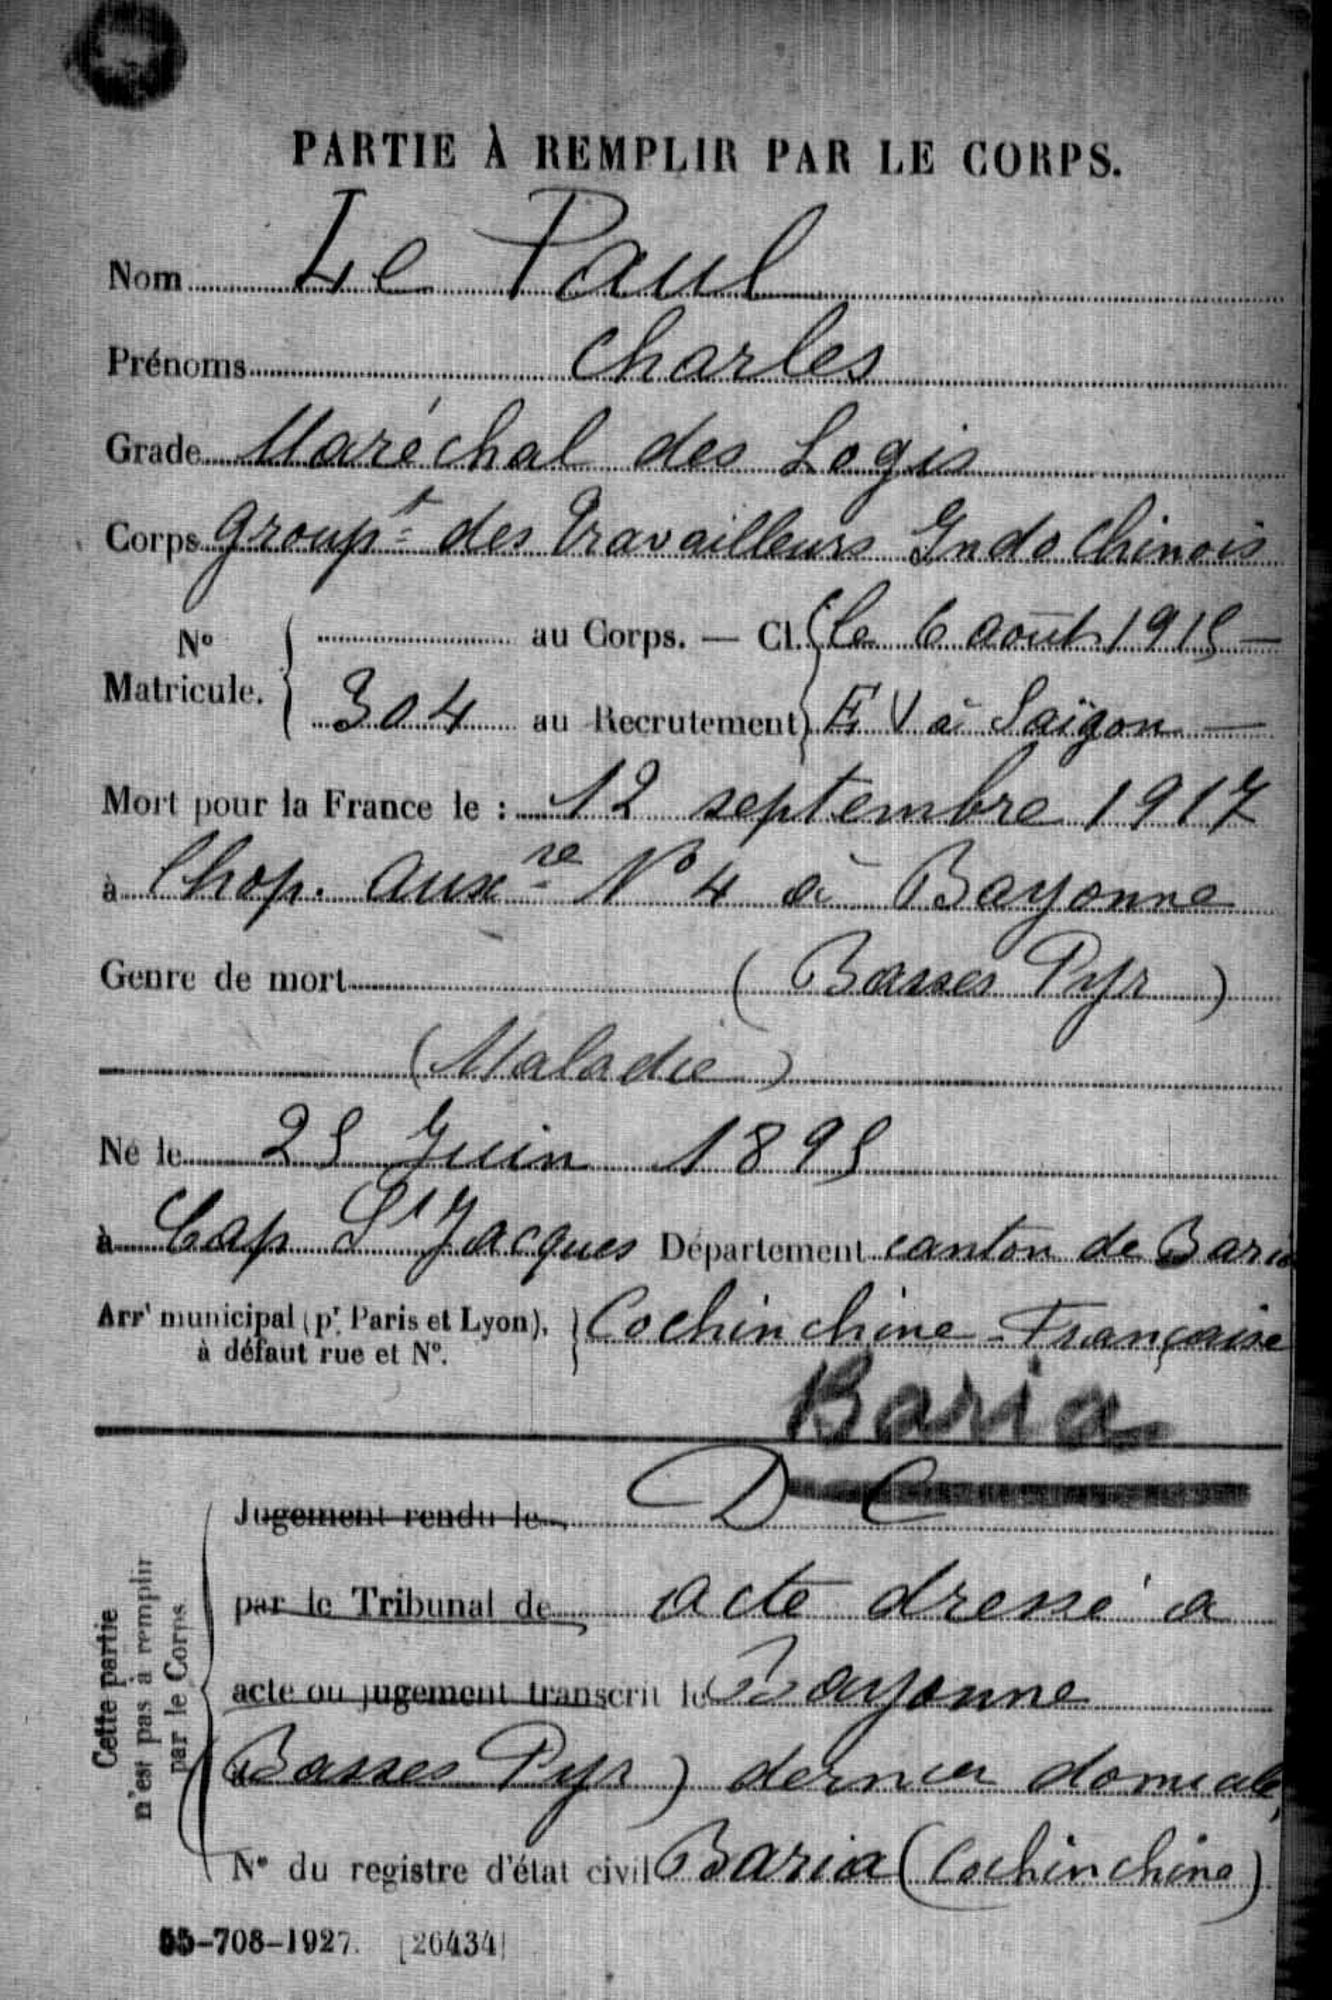 PARTIE À REMPLIR PAR LE CORPS.
Nom Le Paul
Prénoms Charles
Grade Maréchal des Logis
Corps Groupt des Travailleurs Indo Chinois
N° Matricule. { au Corps. — Cl. { le 6 août 1915 —
304 au Recrutement } E V à Saïgon —
Mort pour la France le : 12 septembre 1917
à l'hop. Auxre N° 4 à Bayonne
Genre de mort (Basses Pyr)
(Maladie)
Né le 25 Juin 1895
à Cap St Jacques Département canton de Baria
Arrt municipal (pr Paris et Lyon), } Cochinchine Française
à défaut rue et N°.
Baria
Jugement rendu le D C
par le Tribunal de acte dressé a
acte ou jugement transcrit le Bayonne
(Basses Pyr) dernier domicile,
N° du registre d'état civil Baria (Cochinchine)
Cette partie
n'est pas à remplir
par le Corps.
55-708-1927. [26434]